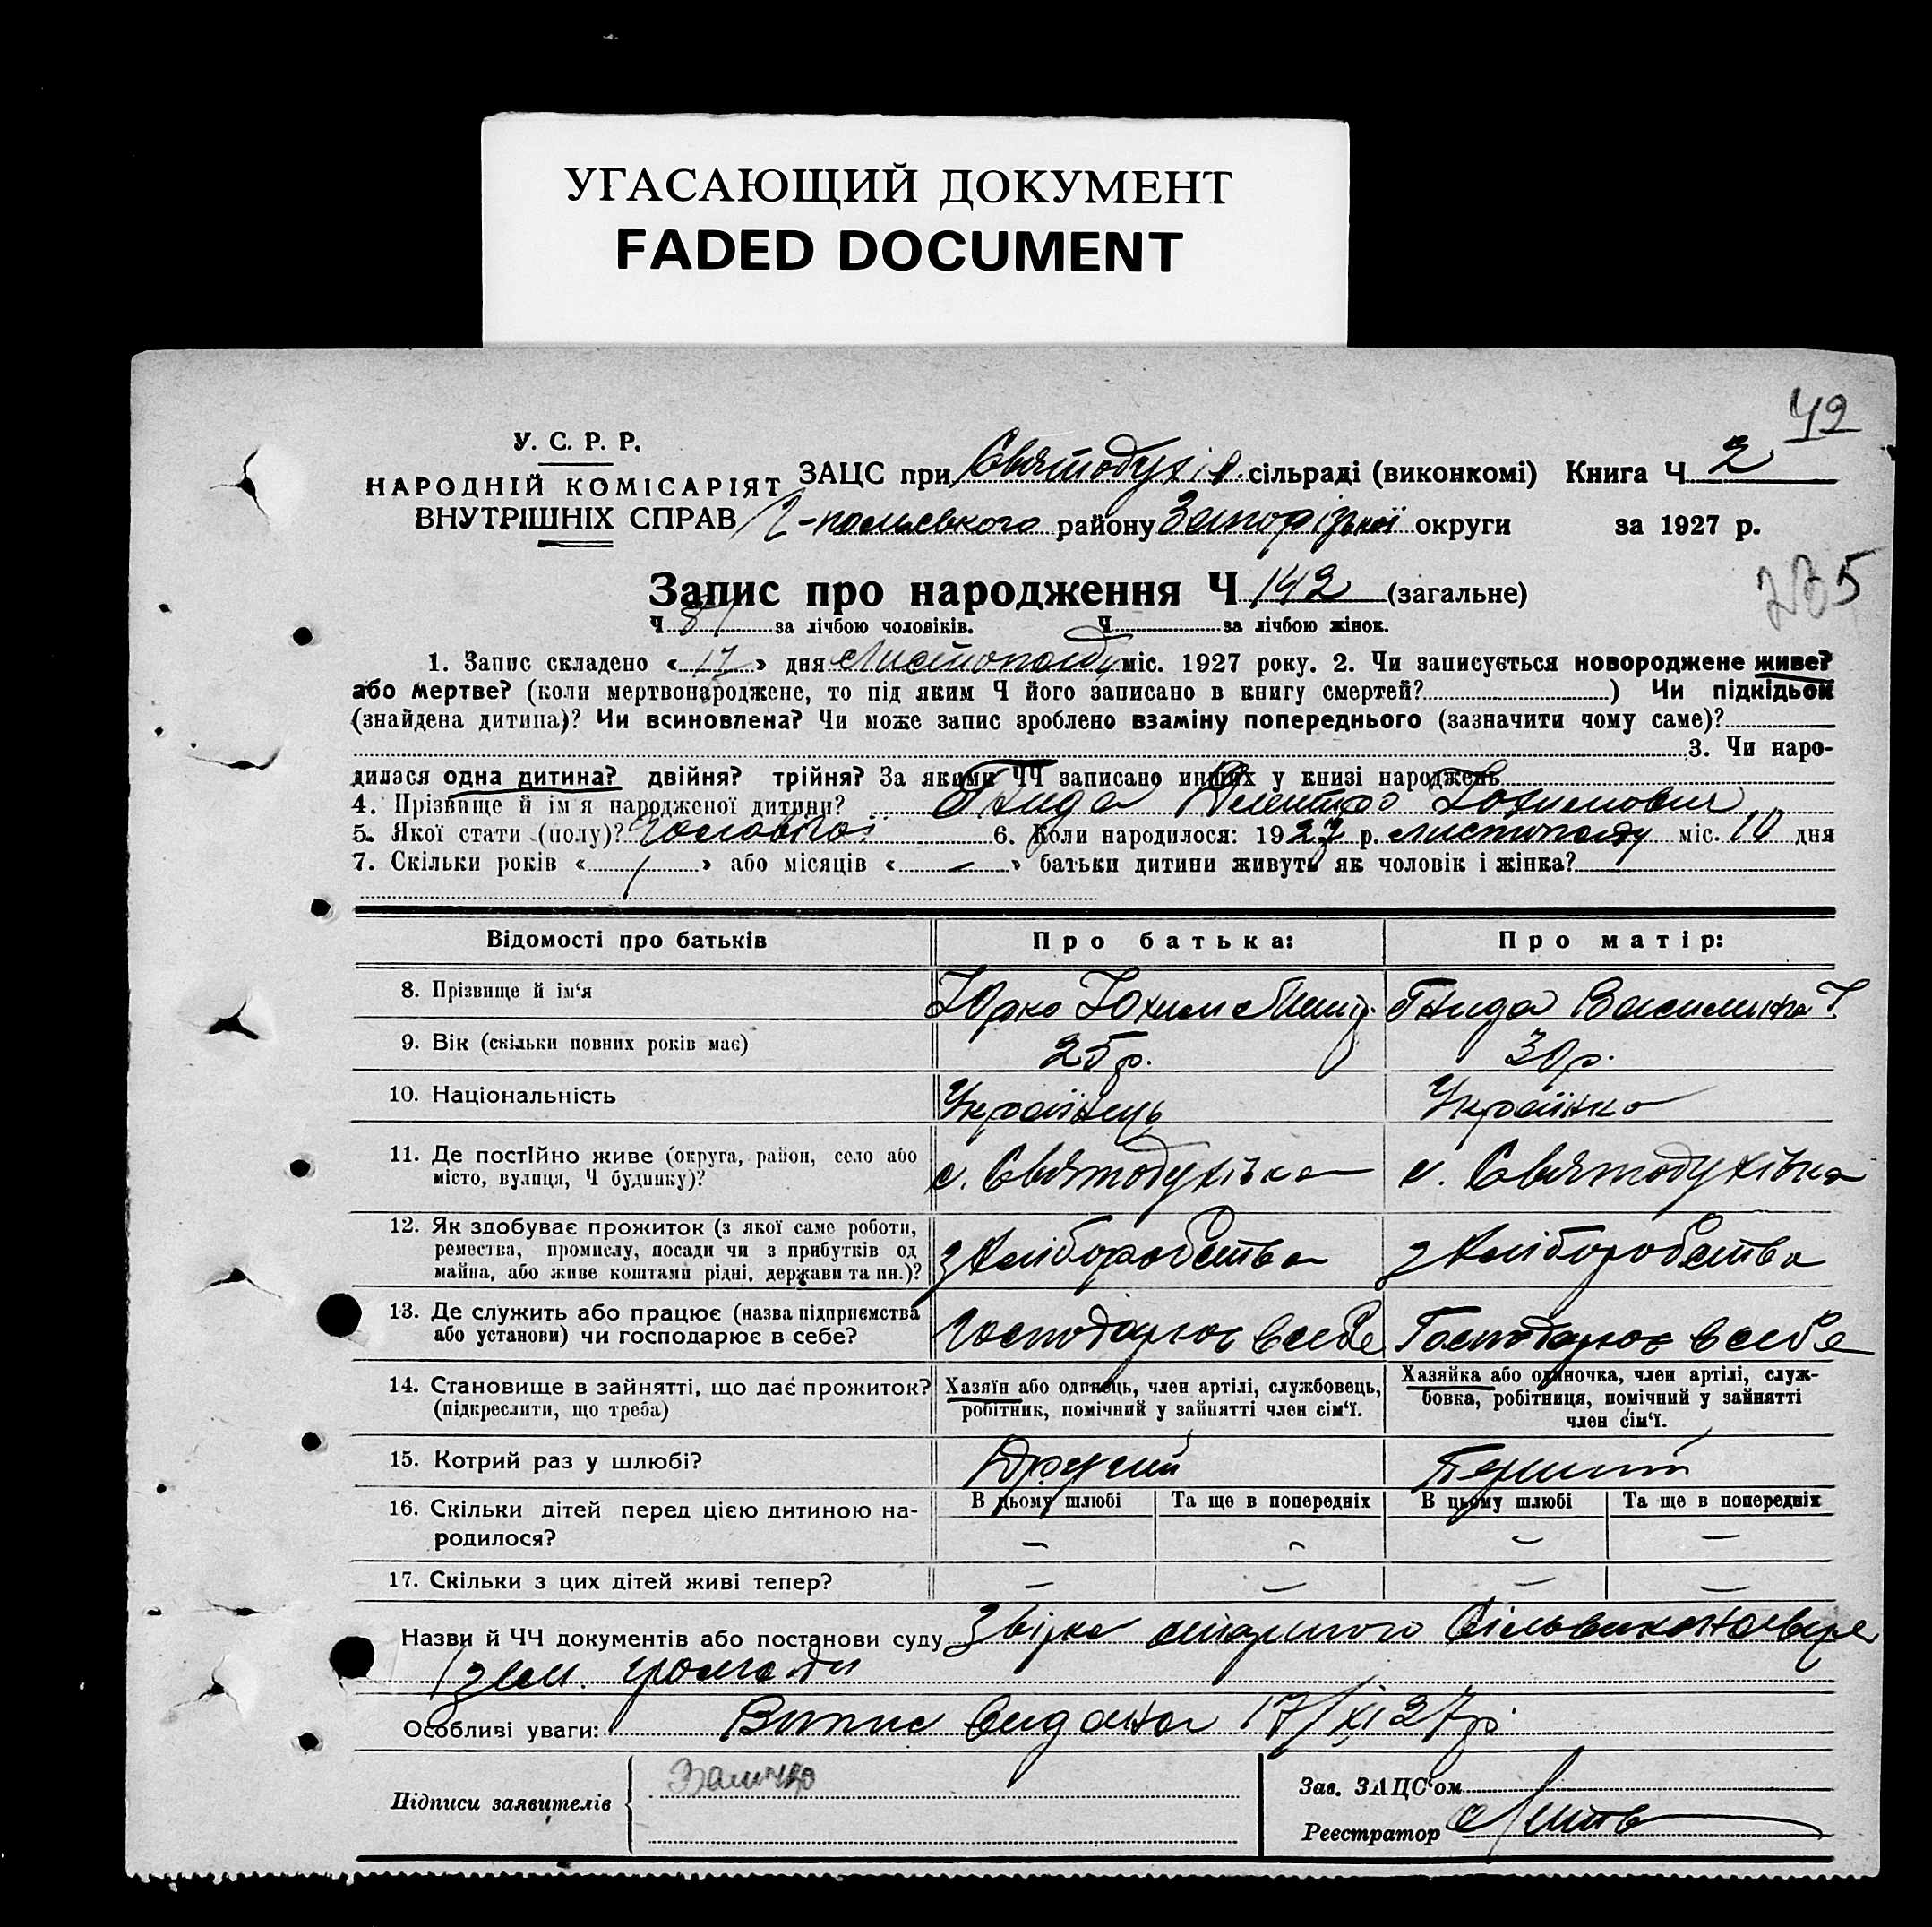 УГАСАЮЩИЙ ДОКУМЕНТ
FADED DOCUMENT
42
У. С. Р. Р.
НАРОДНІЙ КОМІСАРІЯТ
ВНУТРІШНІХ СПРАВ
ЗАЦС при Святодухів. сільраді (виконкомі) Книга Ч 2
району Запорізької округи за 1927 р.
Запис про народження Ч 142 (загальне)
Ч 81 за лічбою чоловіків. Ч за лічбою жінок.
1. Запис складено « 17 » дня Листопаду міс. 1927 року. 2. Чи записується новороджене живе?
або мертве? (коли мертвонароджене, то під яким Ч його записано в книгу смертей? ) Чи підкідьок
(знайдена дитина)? Чи всиновлена? Чи може запис зроблено взаміну попереднього (зазначити чому саме)?
3. Чи наро-
дилася одна дитина? двійня? трійня? За якими ЧЧ записано инших у книзі народжень
4. Прізвище й ім'я народженої дитини? Гнида Юхимович
5. Якої стати (полу)? Чоловічої 6. Коли народилося: 1927 р. листопаду міс. 10 дня
7. Скільки років « / » або місяців « — » батьки дитини живуть як чоловік і жінка?
Відомості про батьків Про батька: Про матір:
8. Прізвище й ім'я Юрко Юхим Гнида Василина
9. Вік (скільки повних років має) 25 р. 30 р.
10. Національність Українець Українка
11. Де постійно живе (округа, район, село або
місто, вулиця, Ч будинку)? с. Святодухівка с. Святодухівка
12. Як здобуває прожиток (з якої саме роботи,
ремества, промислу, посади чи з прибутків од
майна, або живе коштами рідні, держави та ин.)? з хліборобства з хліборобства
13. Де служить або працює (назва підприємства
або установи) чи господарює в себе? Господарює в себе Господарює в себе
14. Становище в зайнятті, що дає прожиток?
(підкреслити, що треба)
Хазяїн або одинець, член артілі, службовець,
робітник, помічний у зайнятті член сім'ї.
Хазяйка або одиночка, член артілі, служ-
бовка, робітниця, помічний у зайнятті
член сім'ї.
15. Котрий раз у шлюбі? Другий Перший
В цьому шлюбі Та ще в попередніх В цьому шлюбі Та ще в попередніх
16. Скільки дітей перед цією дитиною на-
родилося? — — — —
17. Скільки з цих дітей живі тепер? — — — —
Назви й ЧЧ документів або постанови суду
зем. громади
Особливі уваги: Випис видана 17/XI 27 р.
Підписи заявителів
Зав. ЗАЦС'ом
Реестратор